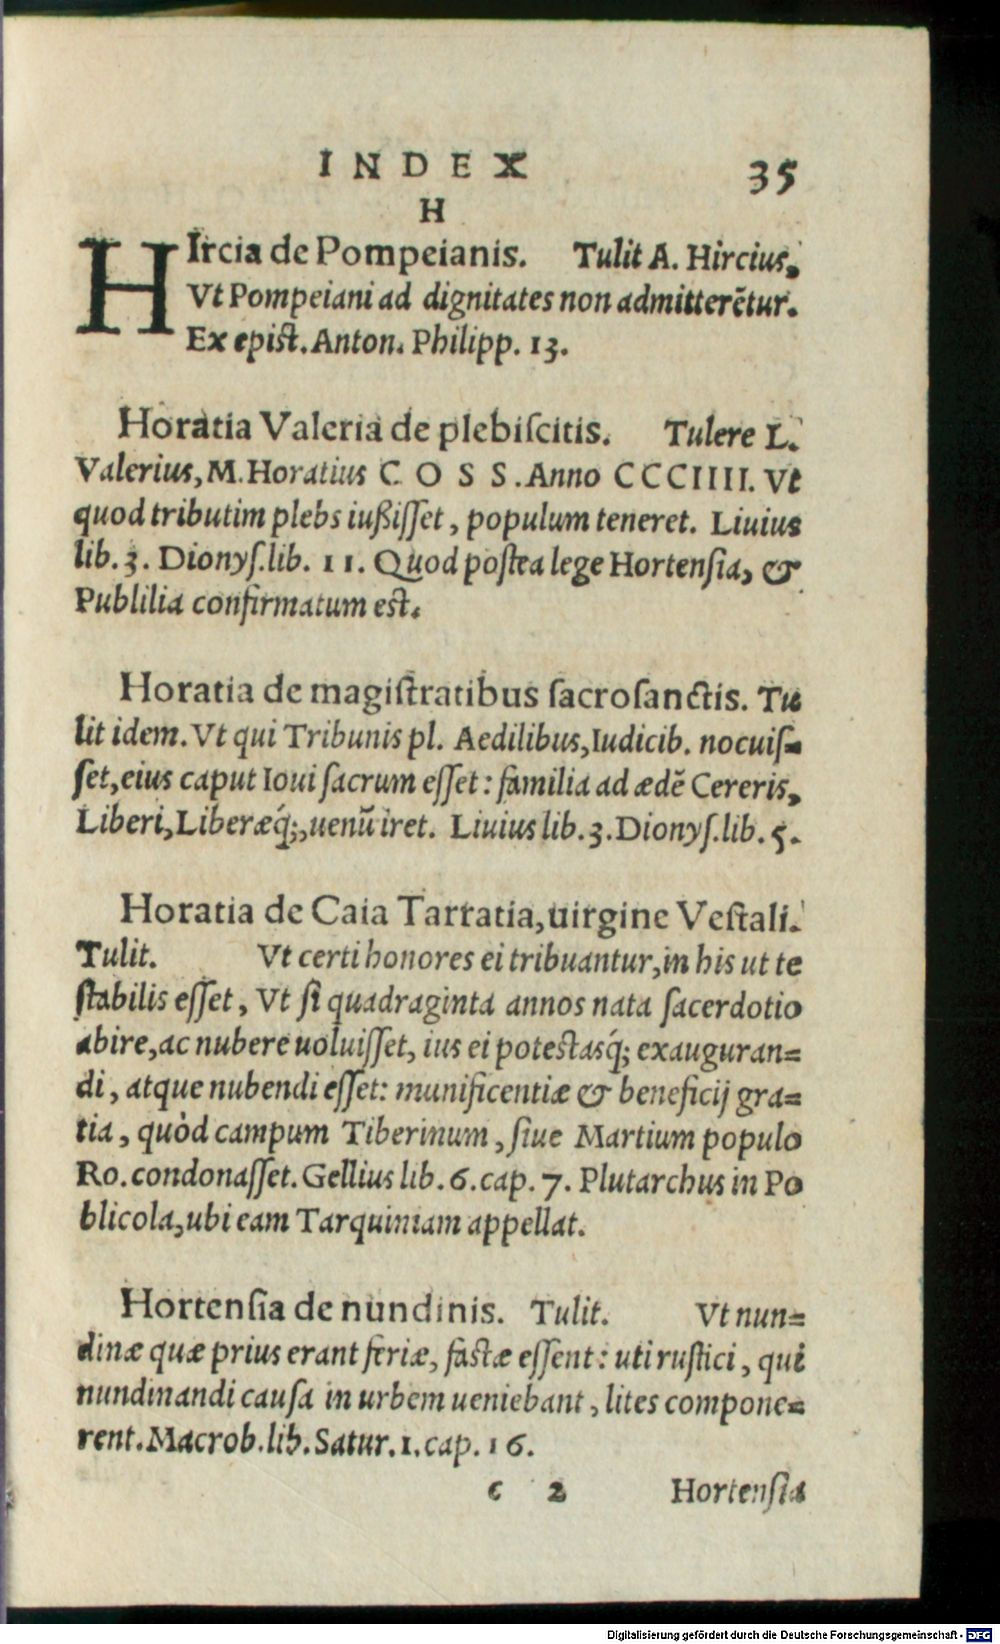 INDEX 35
H
HIrcia de Pompeianis. Tulit A. Hircius,
Vt Pompeiani ad dignitates non admitterẽtur.
Ex epist. Anton. Philipp. 13.
Horatia Valeria de plebiſcitis. Tulere L.
Valerius, M. Horatius C O S S. Anno CCCIIII. Vt
quod tributim plebs iußiſſet, populum teneret. Liuius
lib. 3. Dionyſ. lib. 11. Quod postea lege Hortenſia, &
Publilia confirmatum est.
Horatia de magiſtratibus ſacroſanctis. Tu
lit idem. Vt qui Tribunis pl. Aedilibus, Iudicib. nocuiſ=
ſet, eius caput Ioui ſacrum eſſet: familia ad ædẽ Cereris,
Liberi, Liberæq́;, uenũ iret. Liuius lib. 3. Dionyſ. lib. 5.
Horatia de Caia Tarratia, uirgine Veſtali.
Tulit. Vt certi honores ei tribuantur, in his ut te
ſtabilis eſſet, Vt ſi quadraginta annos nata ſacerdotio
abire, ac nubere uoluiſſet, ius ei potestasq́; exauguran=
di, atque nubendi eſſet: munificentiæ & beneficij gra=
tia, quòd campum Tiberinum, ſiue Martium populo
Ro. condonaſſet. Gellius lib. 6. cap. 7. Plutarchus in Po
blicola, ubi eam Tarquiniam appellat.
Hortenſia de nundinis. Tulit. Vt nun=
dinæ quæ prius erant feriæ, fastæ eſſent: uti ruſtici, qui
nundinandi cauſa in urbem ueniebant, lites compone=
rent. Macrob. lib. Satur. 1. cap. 16.
c 2 Hortenſia
Digitalisierung gefördert durch die Deutsche Forschungsgemeinschaft - DFG